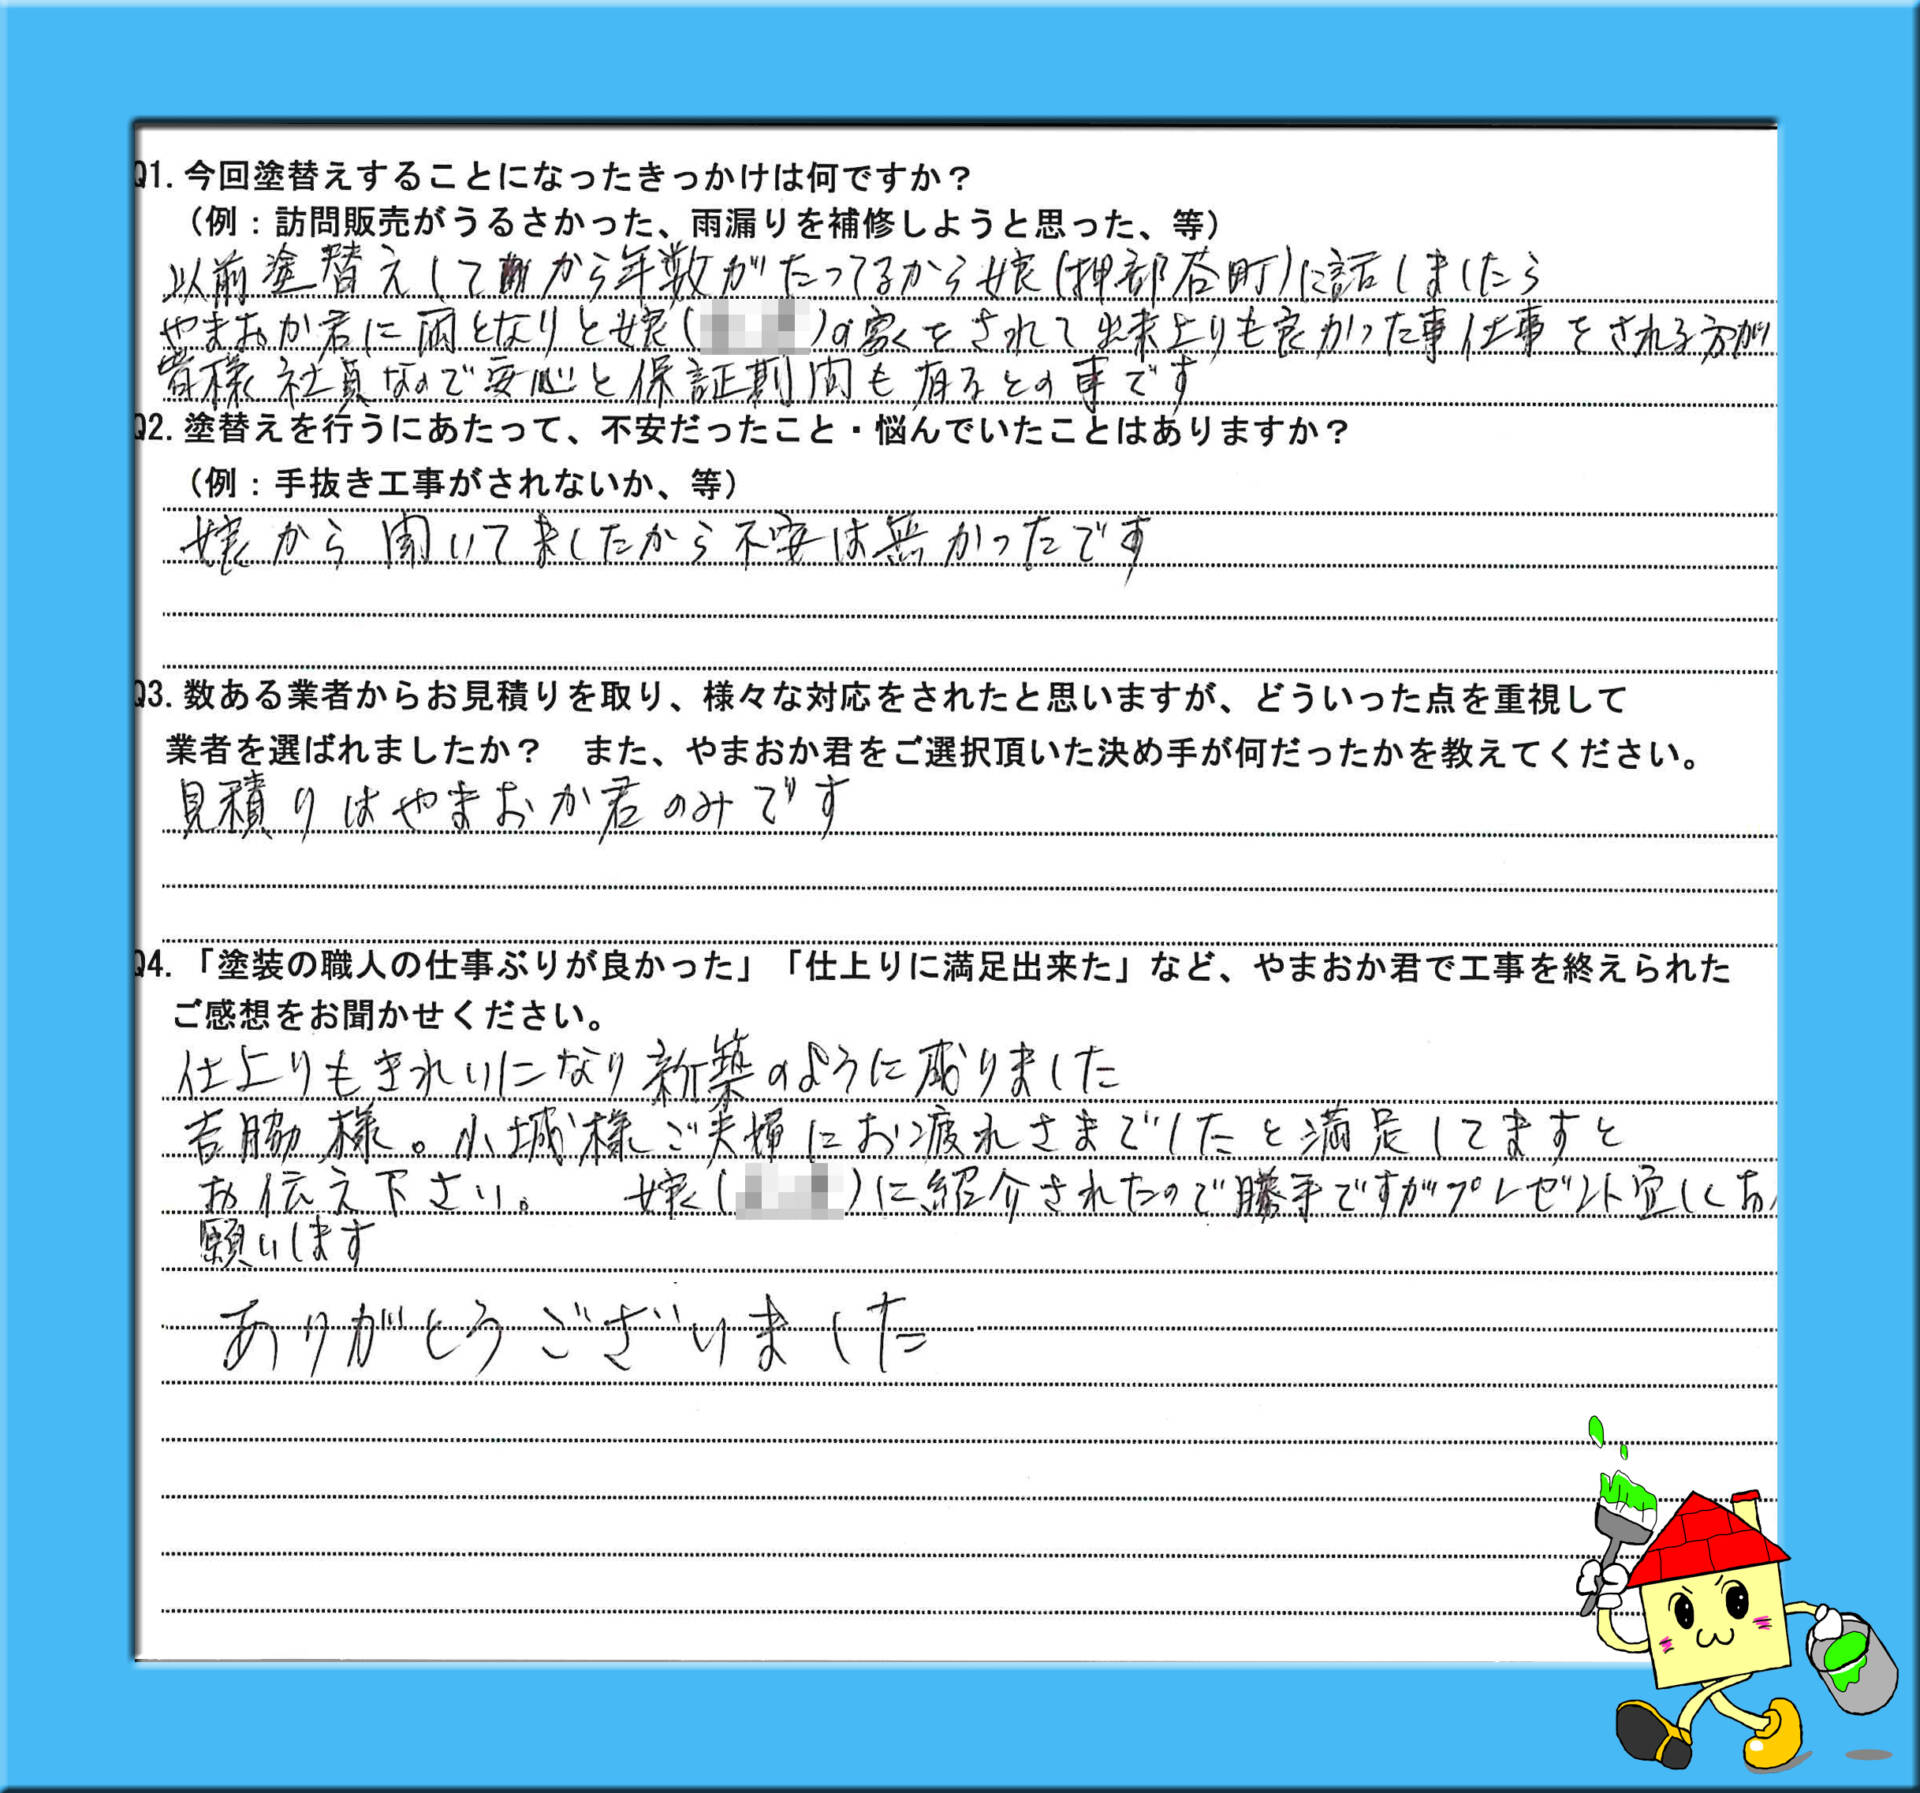 Q1. 今回塗替えすることになったきっかけは何ですか？
（例：訪問販売がうるさかった、雨漏りを補修しようと思った、等）
以前塗替えしてから年数がたってるから娘(押部谷町)に話しましたら
やまおか君に両となりと娘( )の家をされて出来上りも良かった事仕事をされる方が
皆様社員なので安心と保証期間も有るとの事です
Q2. 塗替えを行うにあたって、不安だったこと・悩んでいたことはありますか？
（例：手抜き工事がされないか、等）
娘から聞いて来したから不安は無かったです
Q3. 数ある業者からお見積りを取り、様々な対応をされたと思いますが、どういった点を重視して
業者を選ばれましたか？　また、やまおか君をご選択頂いた決め手が何だったかを教えてください。
見積りはやまおか君のみです
Q4. 「塗装の職人の仕事ぶりが良かった」「仕上りに満足出来た」など、やまおか君で工事を終えられた
ご感想をお聞かせください。
仕上りもきれいになり新築のように成りました
吉脇様。小城様ご夫婦にお疲れさまでしたと満足してますと
お伝え下さい。　娘( )に紹介されたので勝手ですがプレゼント宜しくお
願いします
ありがとうございました